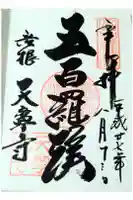 奉拝
平成廿七年八月十二日
五百羅漢
彦根
天寧寺